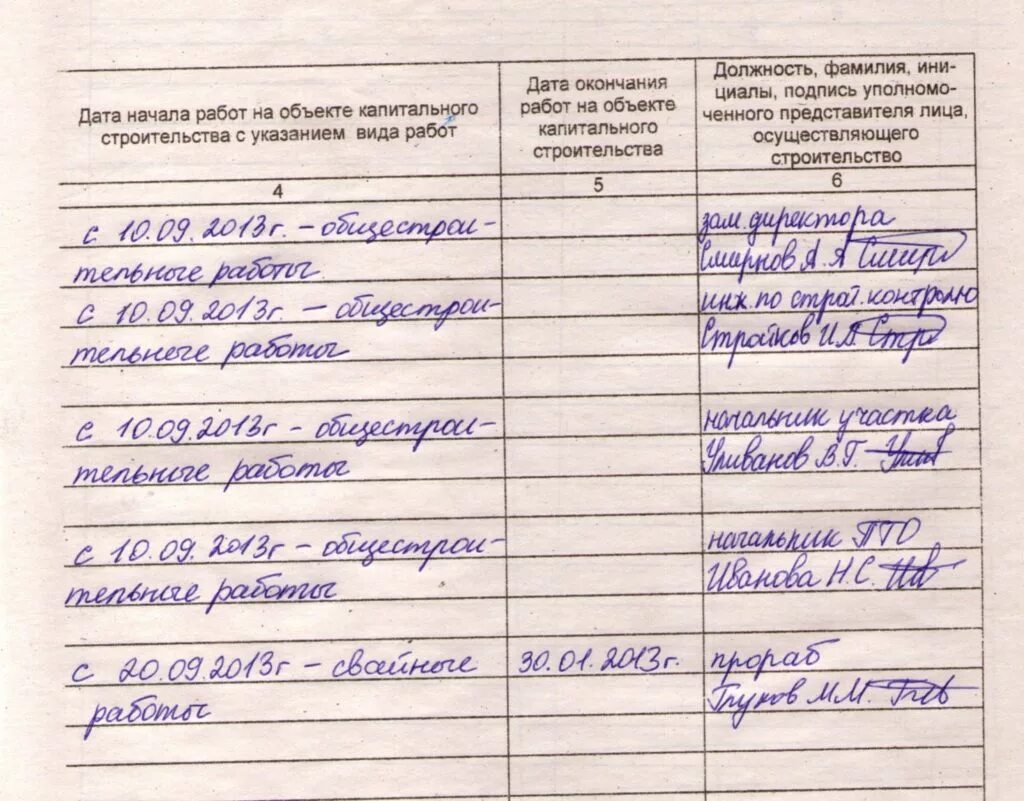 Дата начала работ на объекте капитального
строительства с указанием вида работ
Дата окончания
работ на объекте
капитального
строительства
Должность, фамилия, ини-
циалы, подпись уполномо-
ченного представителя лица,
осуществляющего
строительство
4
5
6
с 10.09.2013г. – общестрои-
тельные работы
зам. директора
Смирнов А.А
с 10.09.2013г. – общестрои-
тельные работы
инж. по строй. контролю
Стройков И.А
с 10.09.2013г – общестрои-
тельные работы
начальник участка
Уливанов В.Г.
с 10.09.2013г – общестрои-
тельные работы
начальник ПТО
Иванова Н.С.
с 20.09.2013г – свайные
работы
30.01.2013г.
прораб
М.М.